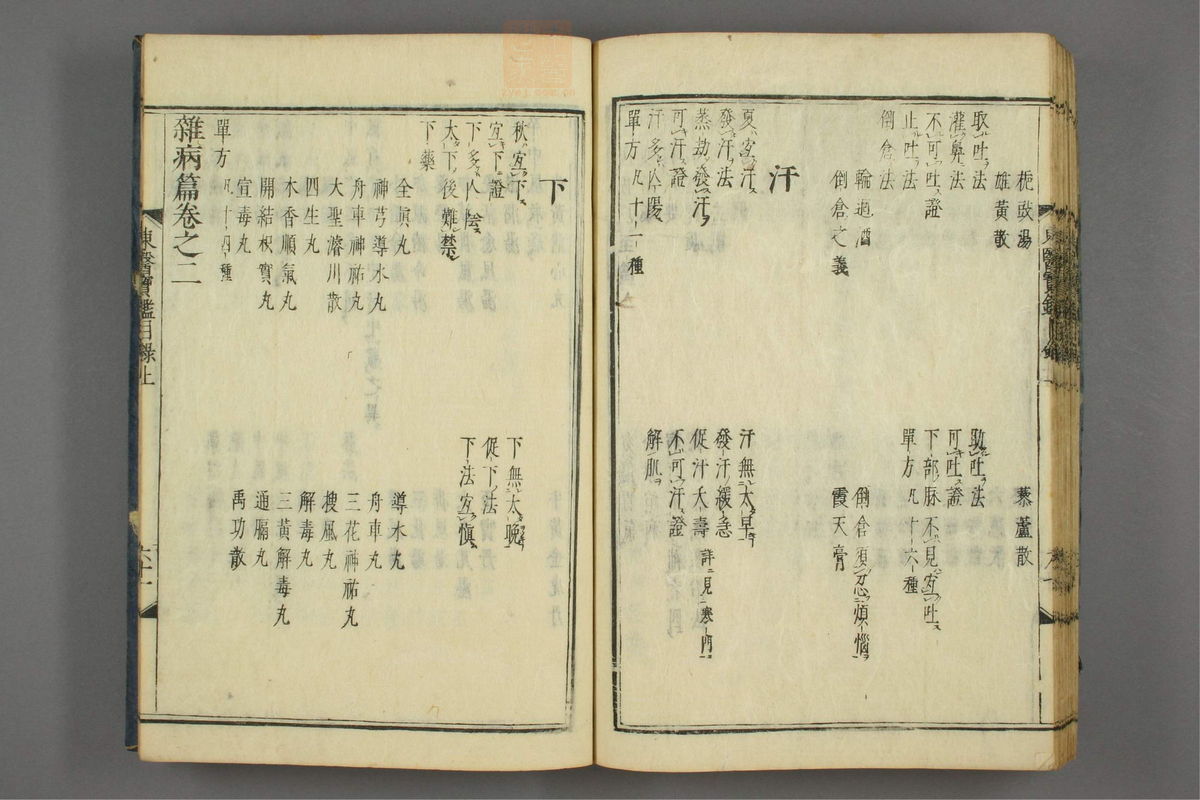 梔豉湯
藜蘆散
雄黃散
取吐法
助吐法
灌鼻法
可吐證
不可吐證
下部脉不見宜吐
止吐法
單方凡十六種
倒倉法
輪廻酒
倒倉須忍煩惱
倒倉之義
霞天膏
汗
夏宜汗
汗無太早
發汗法
發汗緩急
蒸劫發汗
促汗夭壽 詳見寒門
可汗證
不可汗證
汗多亡陽
解肌
單方凡十一種
下
秋宜下
下無太晚
宜下證
促下法
下多亡陰
下法宜愼
大下後難禁
下藥
全眞丸
導水丸
神芎導水丸
舟車丸
舟車神祐丸
三花神祐丸
大聖濬川散
搜風丸
四生丸
解毒丸
木香順氣丸
三黃解毒丸
開結枳實丸
通膈丸
宣毒丸
禹功散
單方凡十四種
雜病篇卷之二
東醫寶鑑目錄上